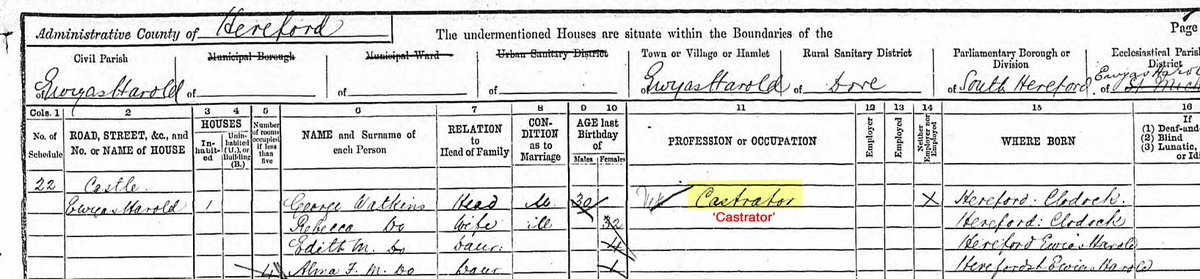 Page
Administrative County of Hereford The undermentioned Houses are situate within the Boundaries of the
Civil Parish Municipal Borough Municipal Ward Urban Sanitary District Town or Village or Hamlet Rural Sanitary District Parliamentary Borough or Division Ecclesiastical Parish District
Ewyas Harold of of of of Ewyas Harold of Dore of South Hereford of Ewyas Harold
Cols. 1 2 3 4 5 6 7 8 9 10 11 12 13 14 15 16
No. of Schedule ROAD, STREET, &c., and No. or NAME of HOUSE HOUSES Inhabited Uninhabited (U.), or Building (B.) Number of rooms occupied if less than five NAME and Surname of each Person RELATION to Head of Family CONDITION as to Marriage AGE last Birthday of Males Females PROFESSION or OCCUPATION Employer Employed Neither Employer nor Employed WHERE BORN If (1) Deaf-and- (2) Blind (3) Lunatic, or Idi
22 Castle
Ewyas Harold 1 George Watkins Head M 30 Castrator X Hereford: Clodock
'Castrator'
Rebecca Do Wife M 32 Hereford: Clodock
Edith M. Do Daur 4 Hereford Ewias Harold
4 Alma F. M. Do Daur 1 Herefordst Ewias Harold